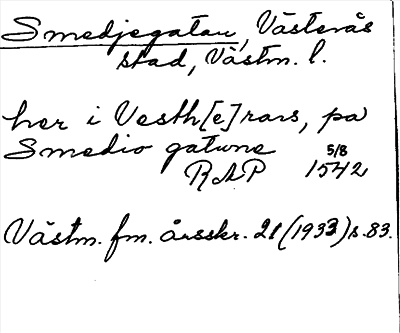 Smedjegatan, Västerås
stad, Västm. l.
her i Vesth[e]rars, pa
Smedio gatune
RAP 5/8 1542
Västm. fm. årsskr. 21 (1933) s. 83.